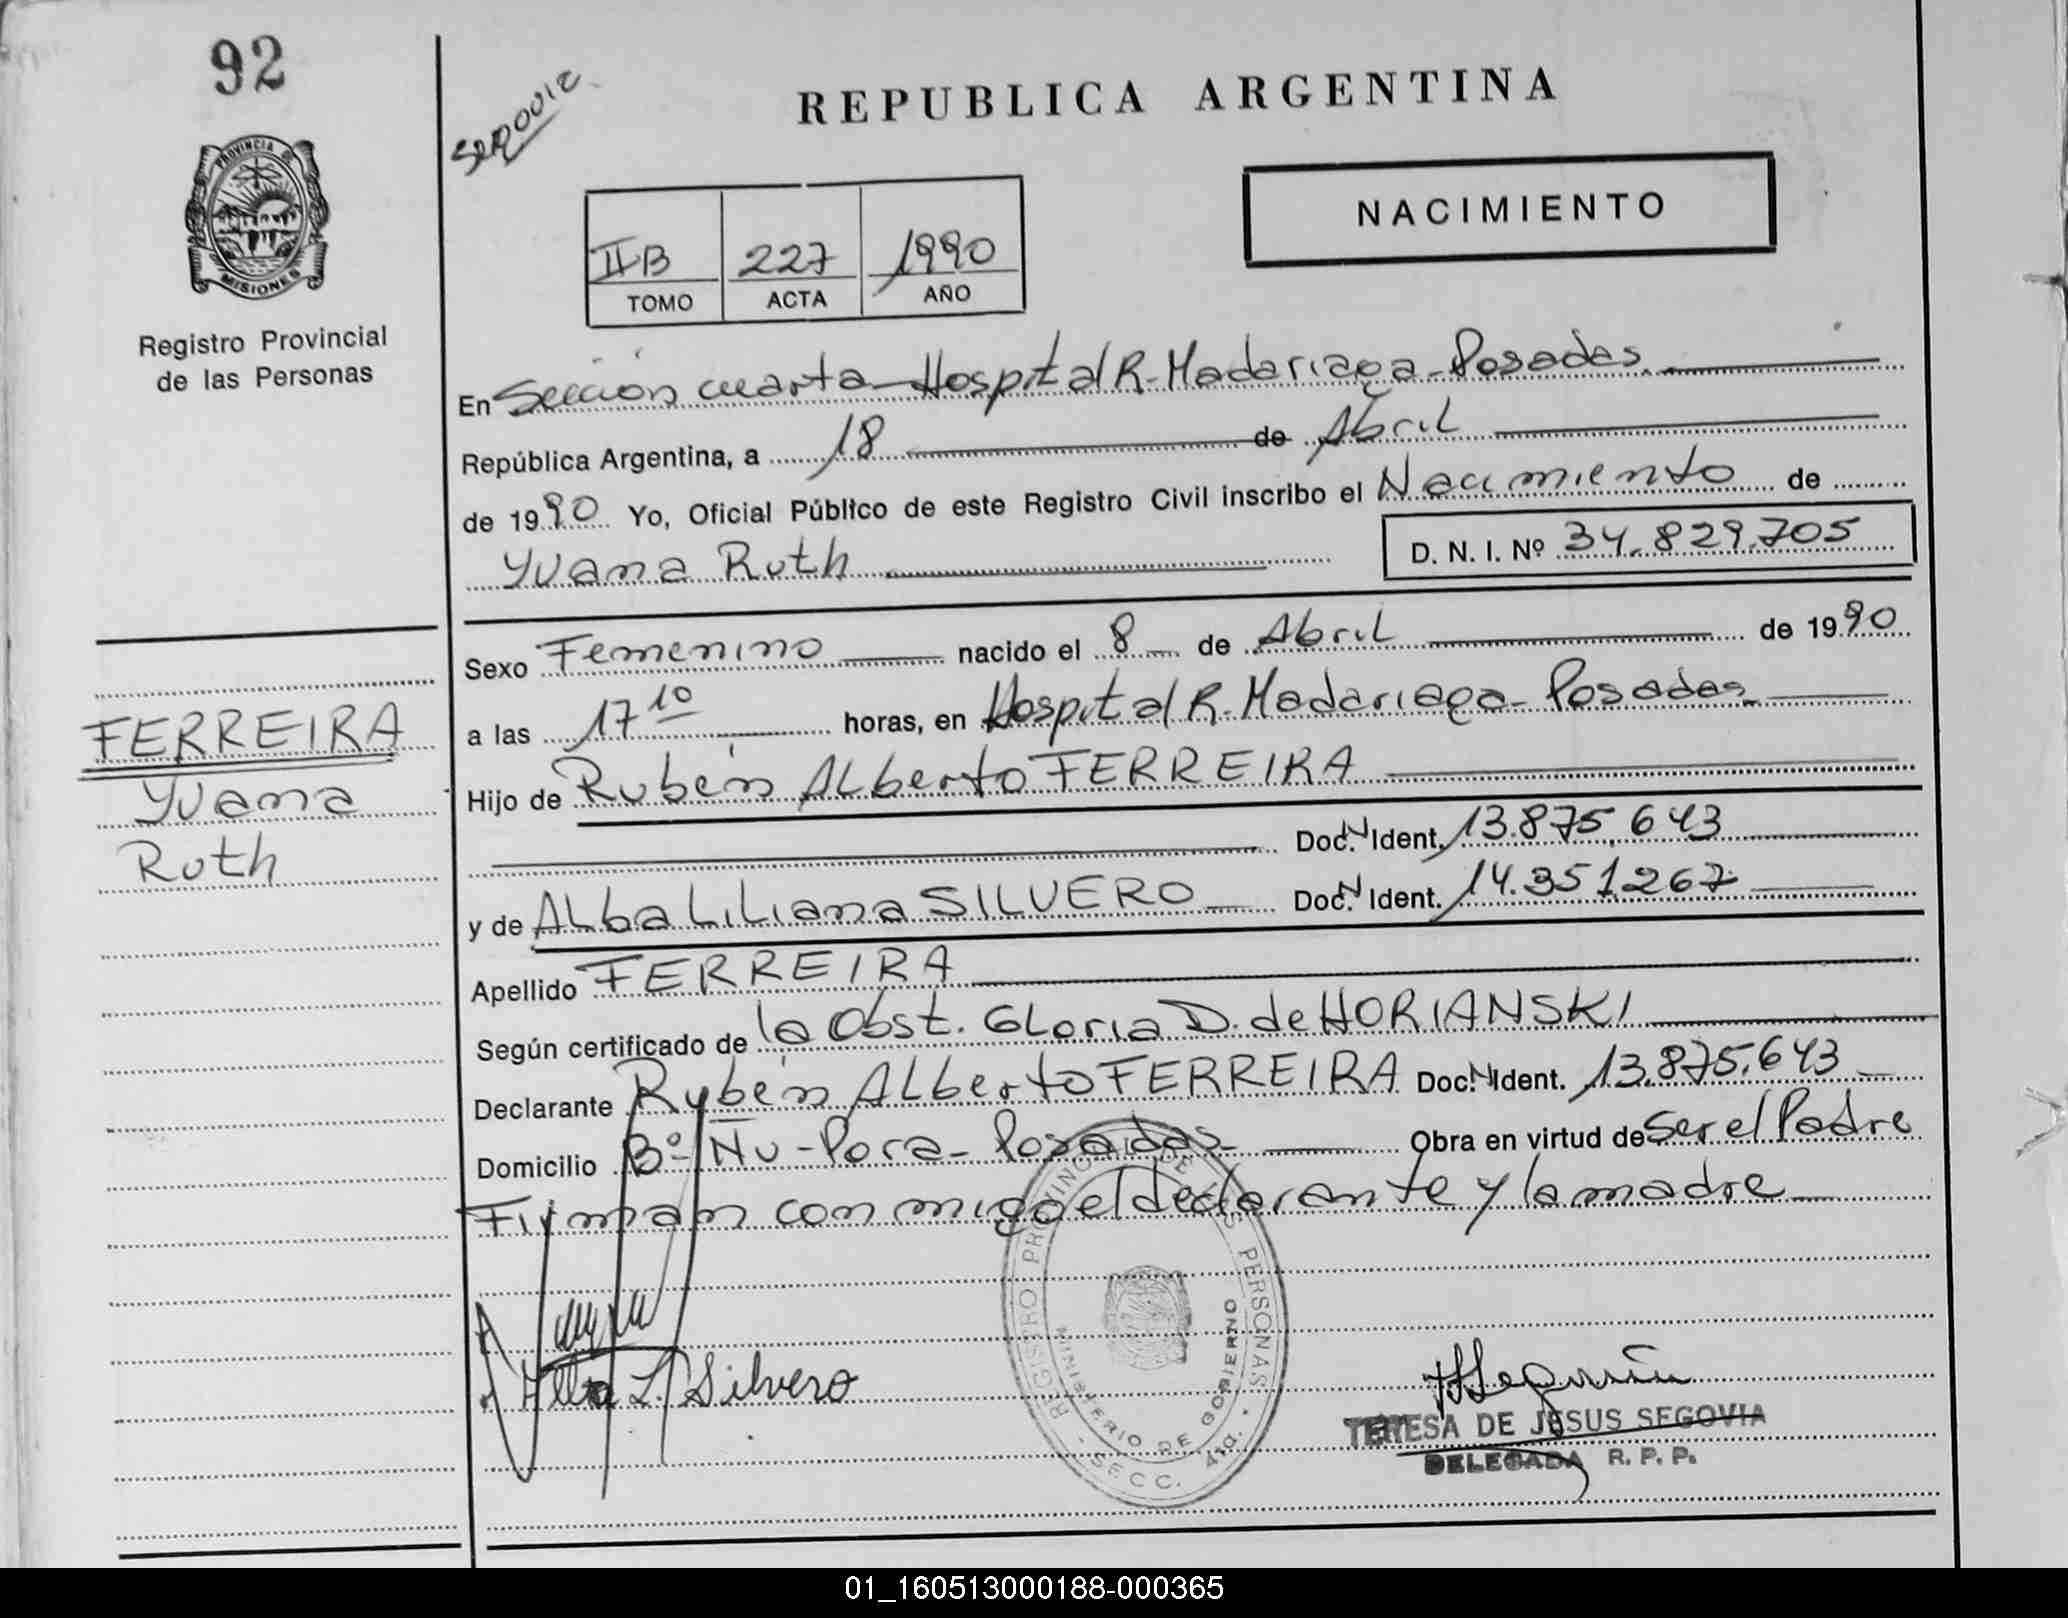 92
PROVINCIA DE
MISIONES
Registro Provincial
de las Personas
REPUBLICA ARGENTINA
NACIMIENTO
II B 227 1990
TOMO ACTA AÑO
En Sección cuarta Hospital R. Madariaga - Posadas
República Argentina, a 18 de Abril
de 1990 Yo, Oficial Público de este Registro Civil inscribo el Nacimiento de
Yvana Ruth D. N. I. Nº 34.829.705
Sexo Femenino nacido el 8 de Abril de 1990
a las 17 10 horas, en Hospital R. Madariaga - Posadas
Hijo de Rubén ALberto FERREIRA
Doc. N Ident. 13.875.643
y de ALba LiLiana SILVERO Doc. N Ident. 14.351.267
Apellido FERREIRA
Según certificado de la Obst. GLoria D. de HORIANSKI
Declarante Rubén ALberto FERREIRA Doc. N Ident. 13.875.643
Domicilio Bº Ñu-Pora - Posadas Obra en virtud de Ser el Padre
Firman conmigo el declarante y la madre
FERREIRA
Yvana
Ruth
Alba L. Silvero
REGISTRO PROVINCIAL DE LAS PERSONAS
MINISTERIO DE GOBIERNO
SECC. 4ta.
TERESA DE JESUS SEGOVIA
DELEGADA R. P. P.
01_160513000188-000365